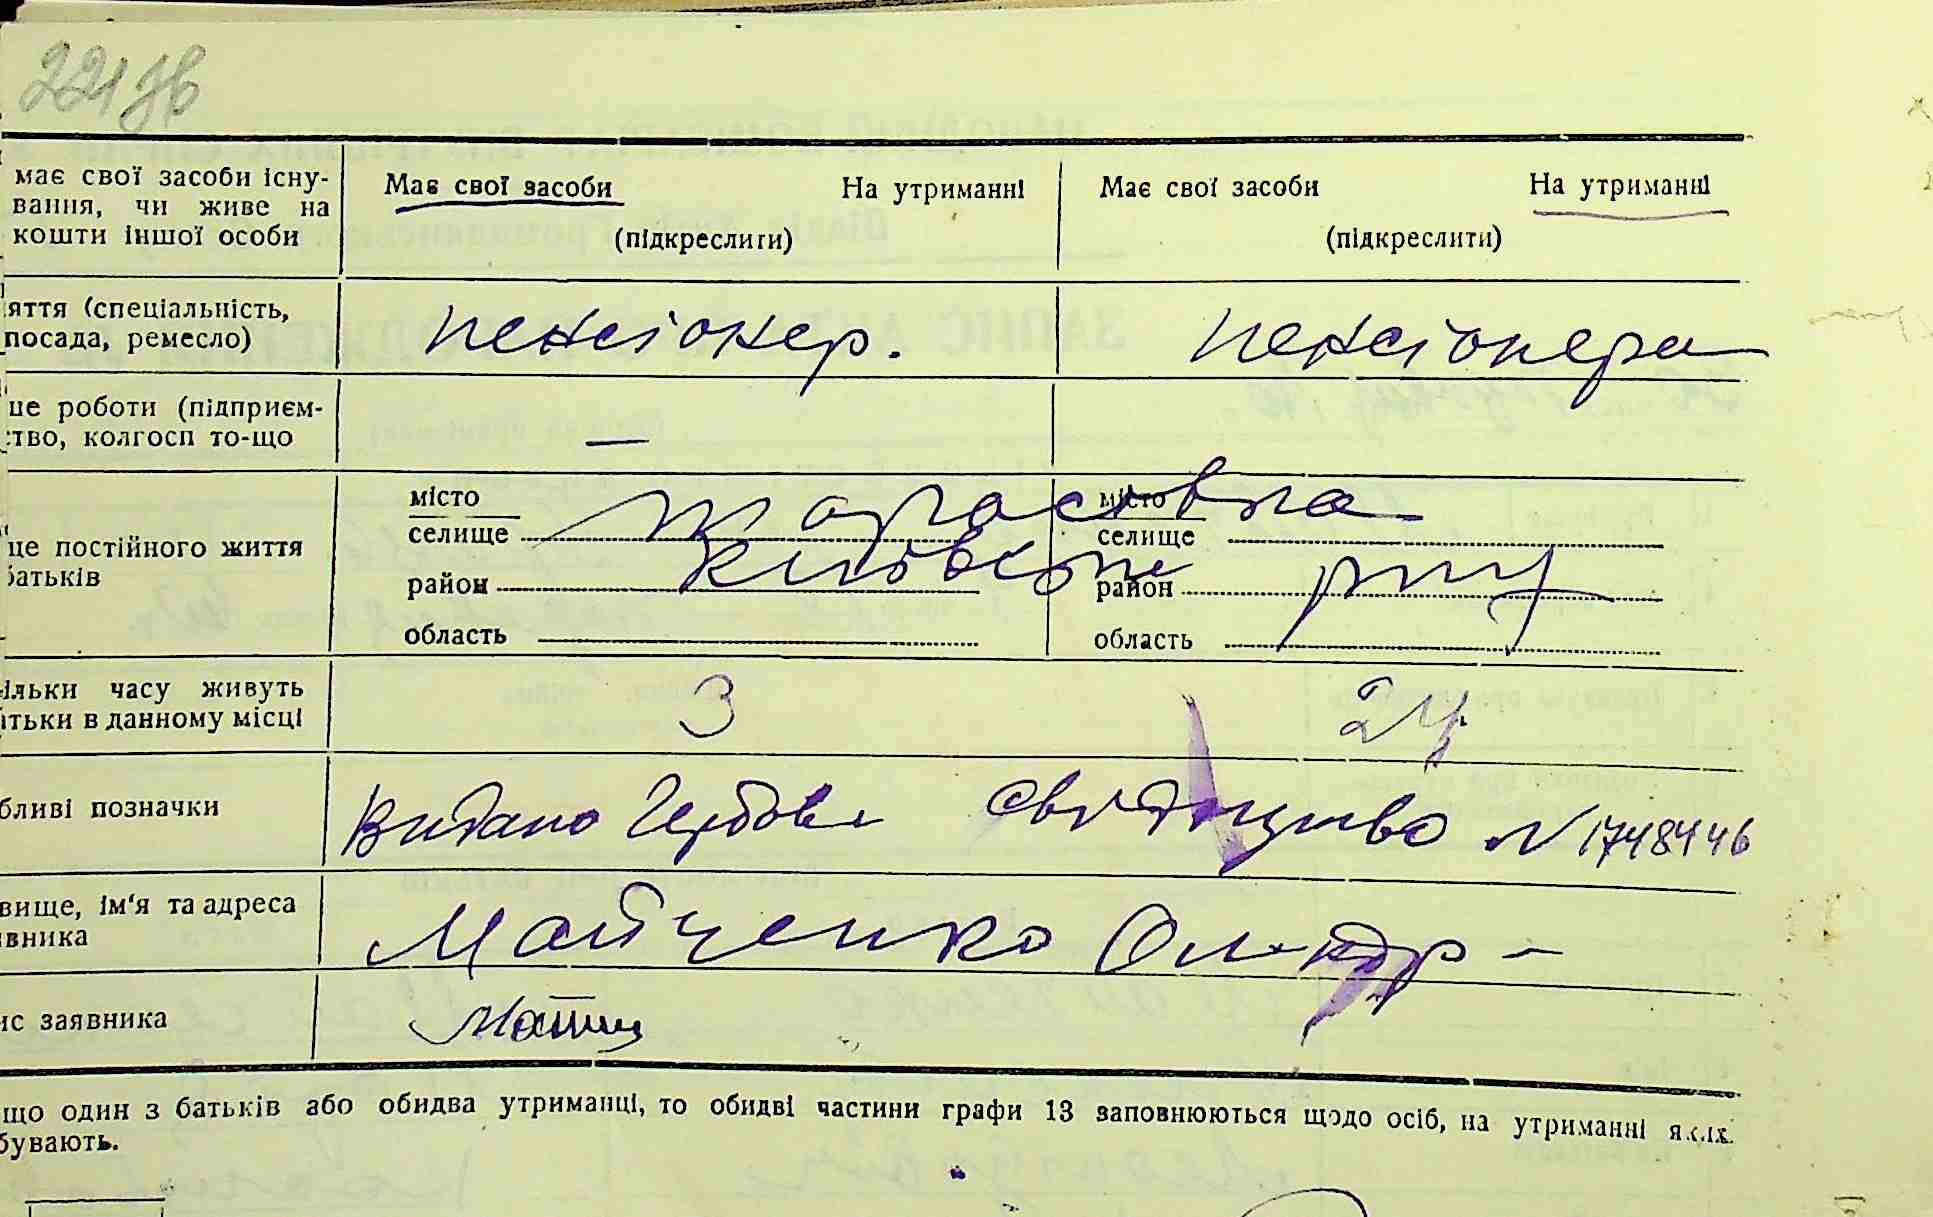 221 зв
має свої засоби існу- Має свої засоби На утриманні Має свої засоби На утриманні
вання, чи живе на
кошти іншої особи (підкреслити) (підкреслити)
яття (спеціальність, пенсіонер. пенсіонера
посада, ремесло)
це роботи (підприєм-
тво, колгосп то-що —
місто місто
селище Тарасівка селище
це постійного життя
батьків район Київськ район рну
область область
ільки часу живуть 3 2 р
тьки в данному місці
бливі позначки Видано Гербове свідоцтво № 1748446
вище, ім'я та адреса Майченко Ол-ндр -
вника
ис заявника
що один з батьків або обидва утриманці, то обидві частини графи 13 заповнюються щодо осіб, на утриманні яких
бувають.